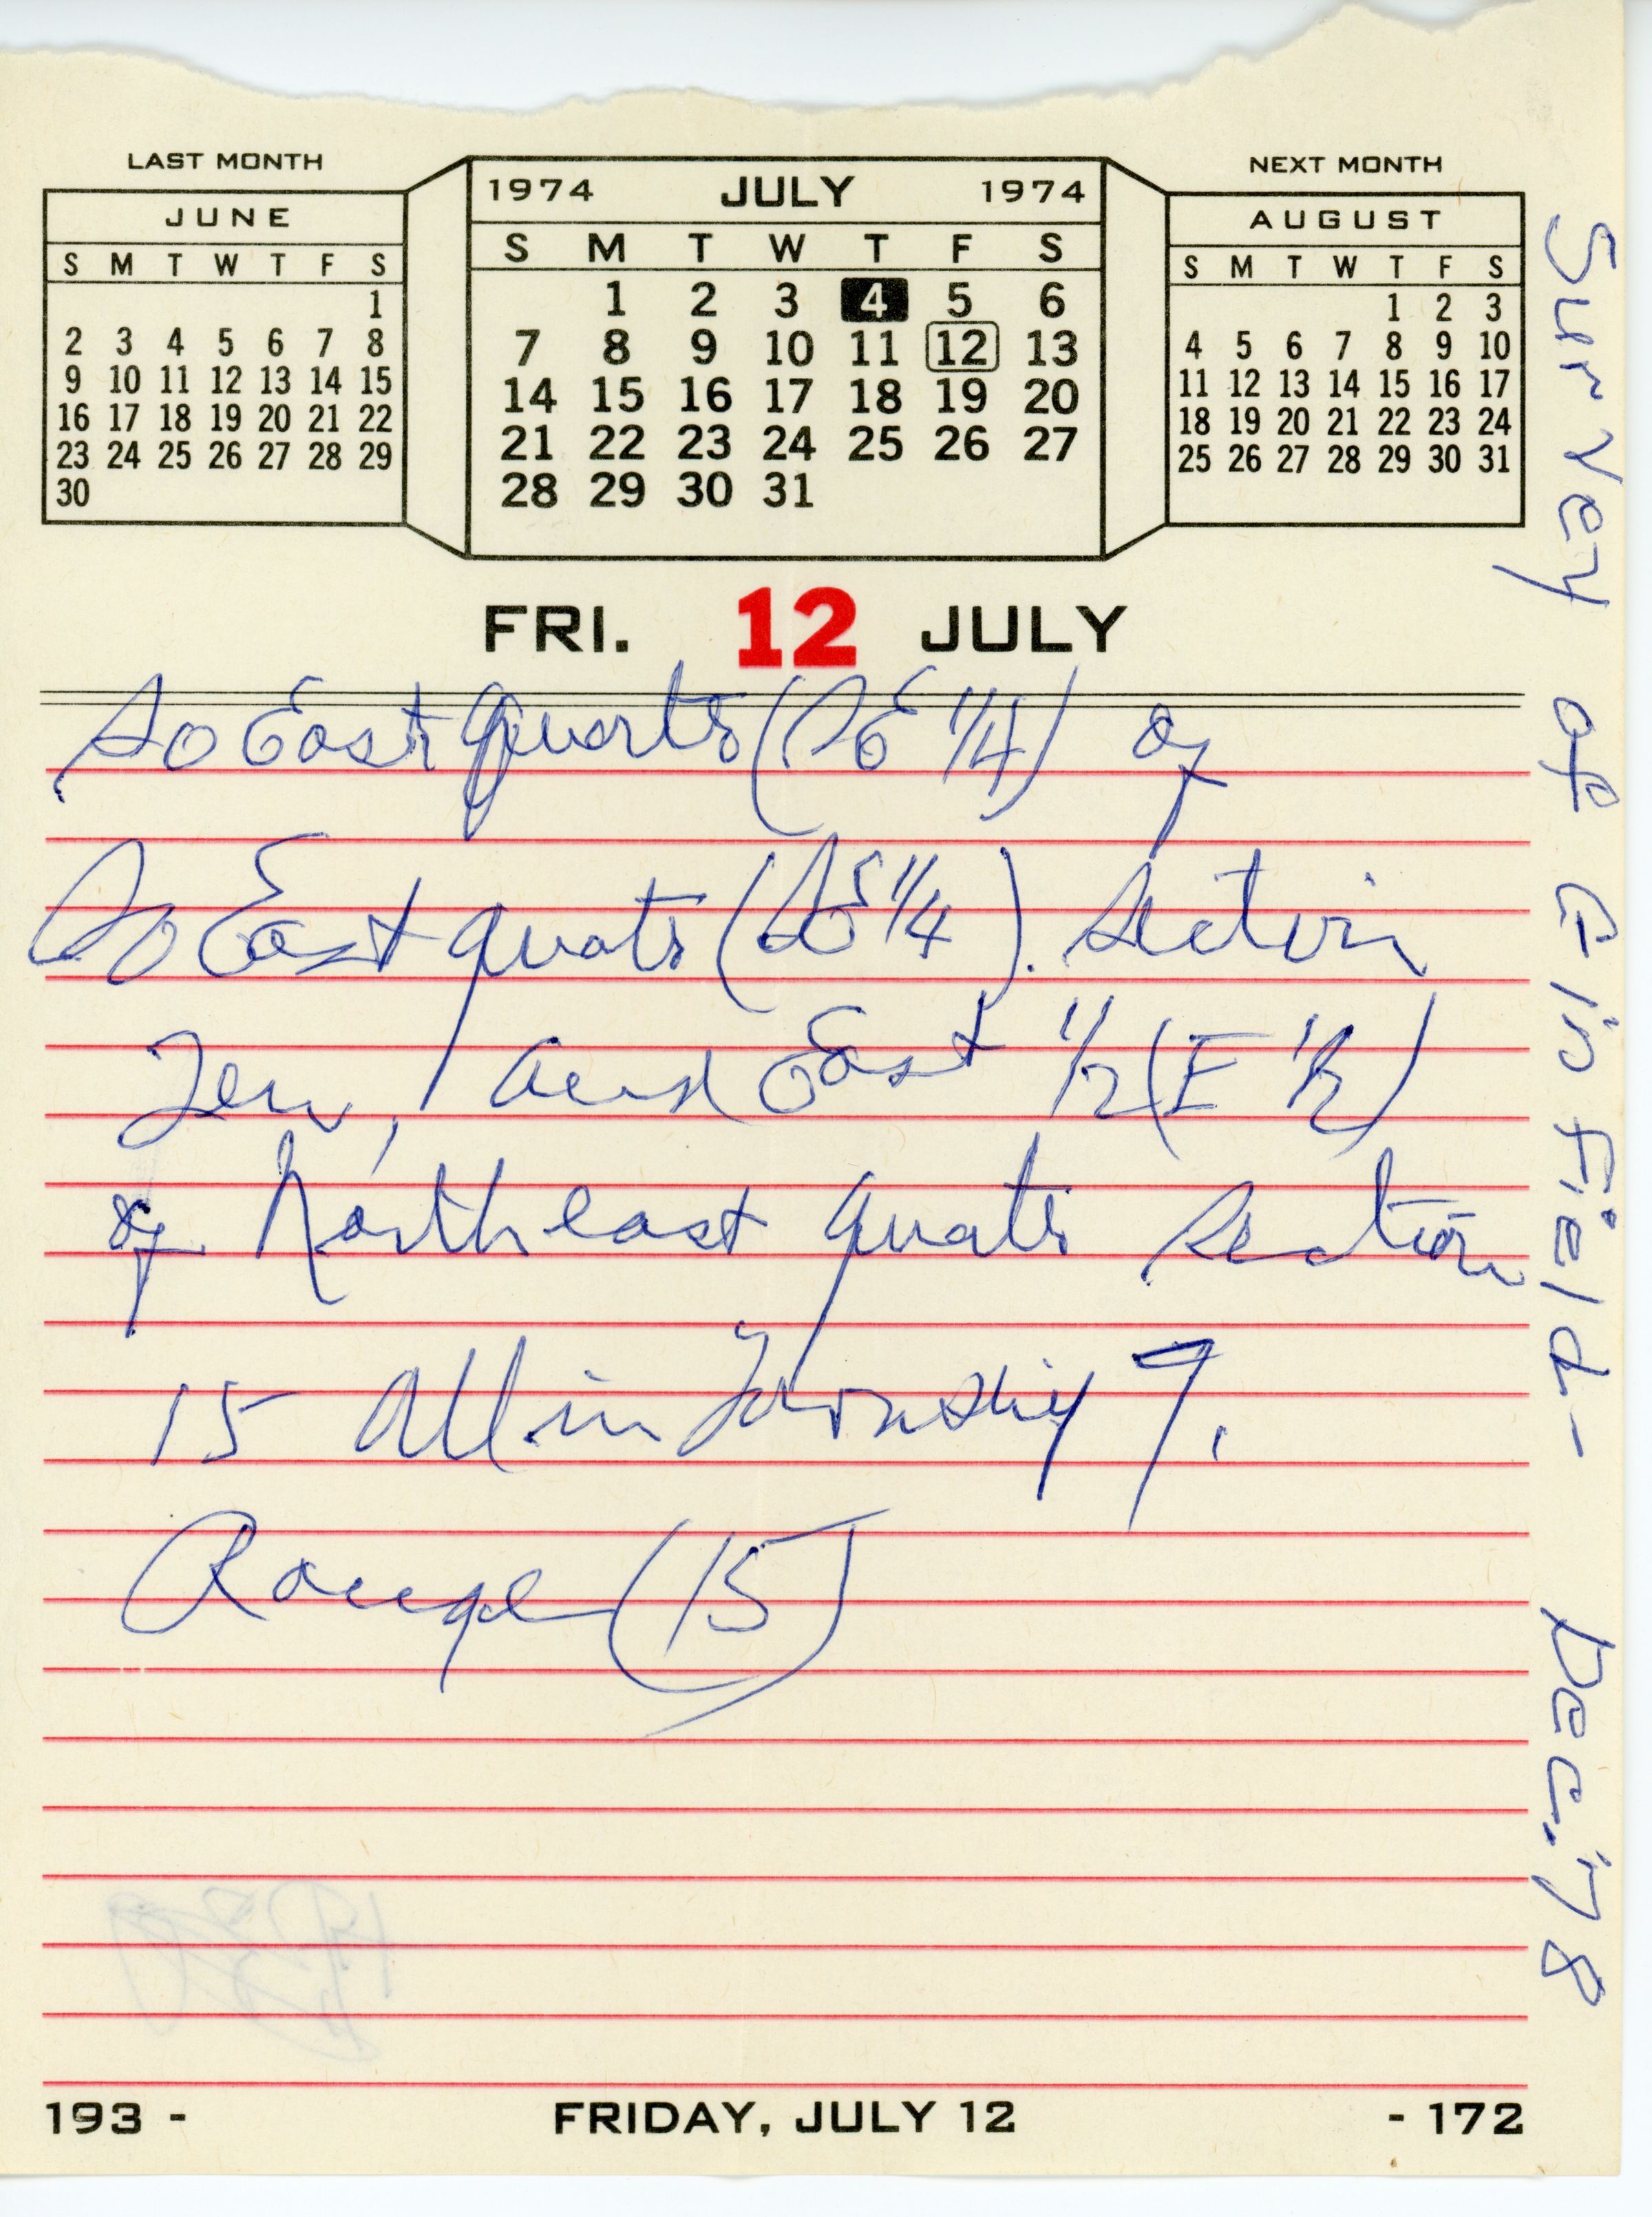 LAST MONTH
JUNE
S M T W T F S
1
2 3 4 5 6 7 8
9 10 11 12 13 14 15
16 17 18 19 20 21 22
23 24 25 26 27 28 29
30
1974 JULY 1974
S M T W T F S
1 2 3 4 5 6
7 8 9 10 11 12 13
14 15 16 17 18 19 20
21 22 23 24 25 26 27
28 29 30 31
NEXT MONTH
AUGUST
S M T W T F S
1 2 3
4 5 6 7 8 9 10
11 12 13 14 15 16 17
18 19 20 21 22 23 24
25 26 27 28 29 30 31
FRI. 12 JULY
So East quarter (SE 1/4) of
So East quater (SE 1/4). Section
Ten, and East 1/2 (E 1/2)
of Northeast quater Section
15 All in Township 7,
Range (15)
Survey of Fin Field - Dec. '78
193 - FRIDAY, JULY 12 - 172